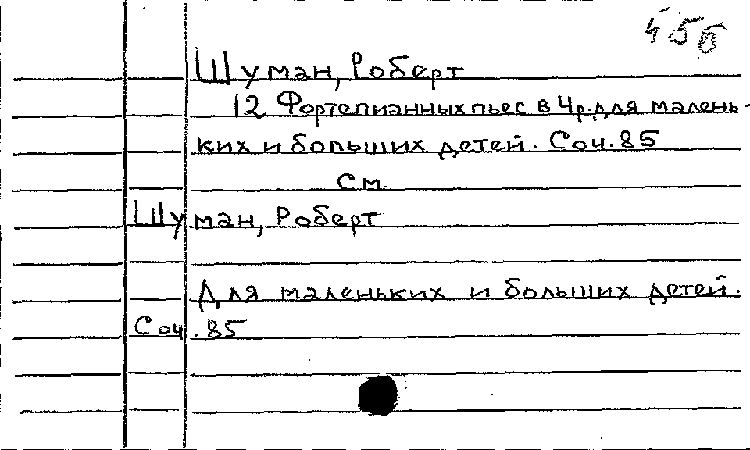 456
Шуман, Роберт
12 Фортепианных пьес в 4 р. для малень-
ких и больших детей. Соч. 85
см
Шуман, Роберт
Для маленьких и больших детей.
Соч. 85